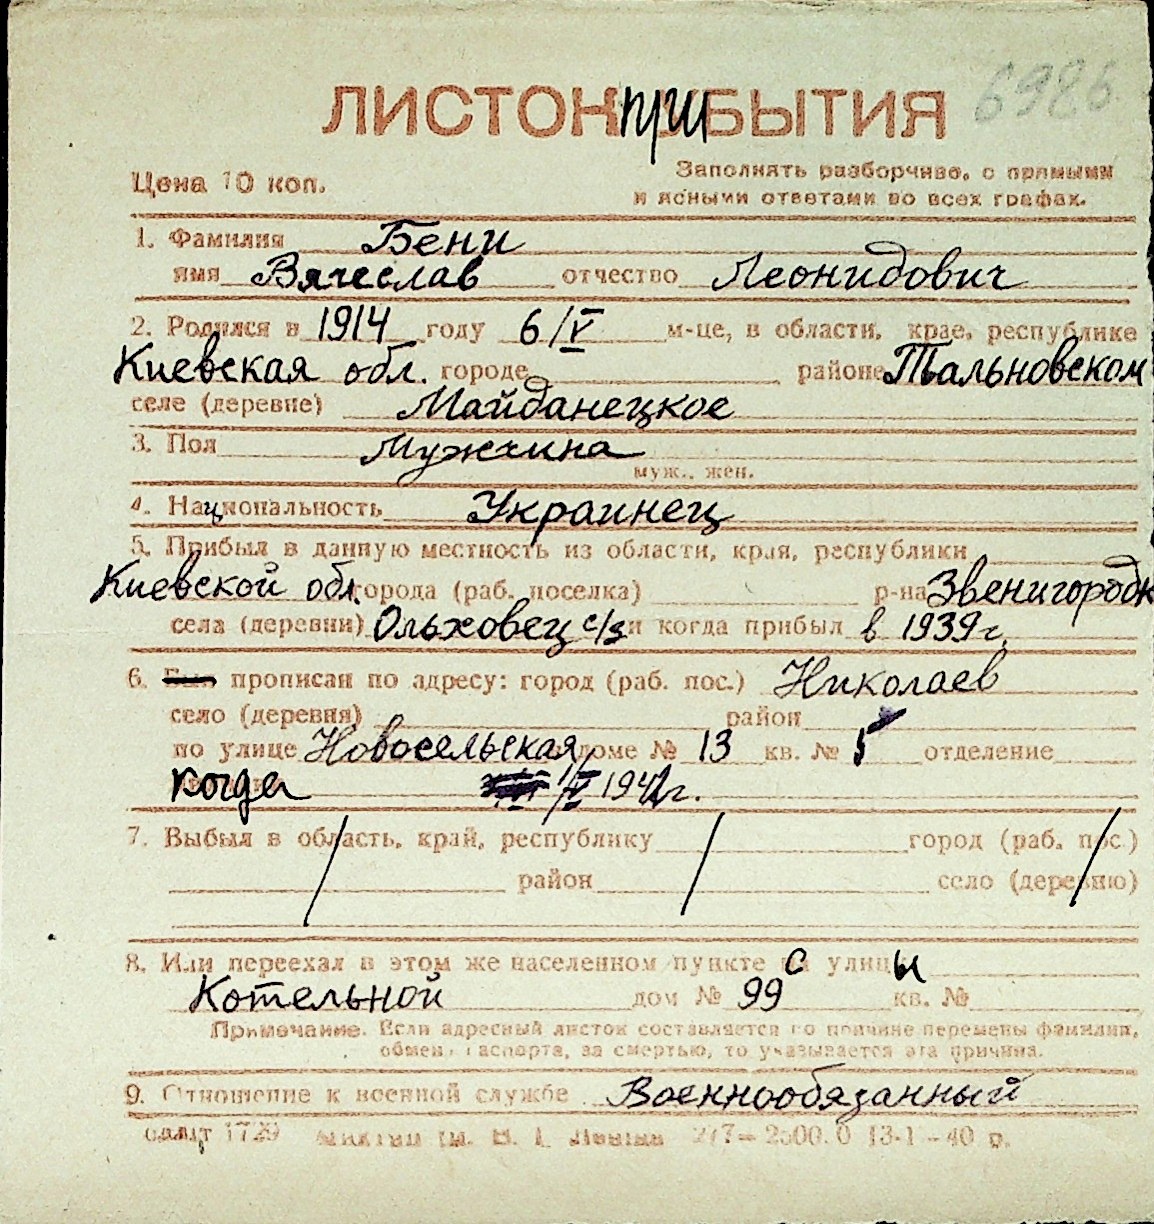 6986
ЛИСТОК ПРИБЫТИЯ
Цена 10 коп.
Заполнять разборчиво, с прямыми
и ясными ответами во всех графах.
1. Фамилия Бени
имя Вячеслав отчество Леонидович
2. Родился в 1914 году 6/V м-це, в области, крае, республике
Киевская обл. городе районе Тальновском
селе (деревне) Майданецкое
3. Пол Мужчина
муж., жен.
4. Национальность Украинец
5. Прибыл в данную местность из области, края, республики
Киевской обл. города (раб. поселка) р-на Звенигородк
села (деревни) Ольховец с/з и когда прибыл в 1939 г.
6. прописан по адресу: город (раб. пос.) Николаев
село (деревня) район
по улице Новосельская доме № 13 кв. № 5 отделение
когда /V 1941 г.
7. Выбыл в область, край, республику город (раб. пос.)
район село (деревню)
8. Или переехал в этом же населенном пункте с улицы
Котельной дом № 99 кв. №
Примечание. Если адресный листок составляется по причине перемены фамилии,
обмена паспорта, за смертью, то указывается эта причина.
9. Отношение к военной службе Военнообязанный
1729 Ленина 2500.0 13-1-40 р.